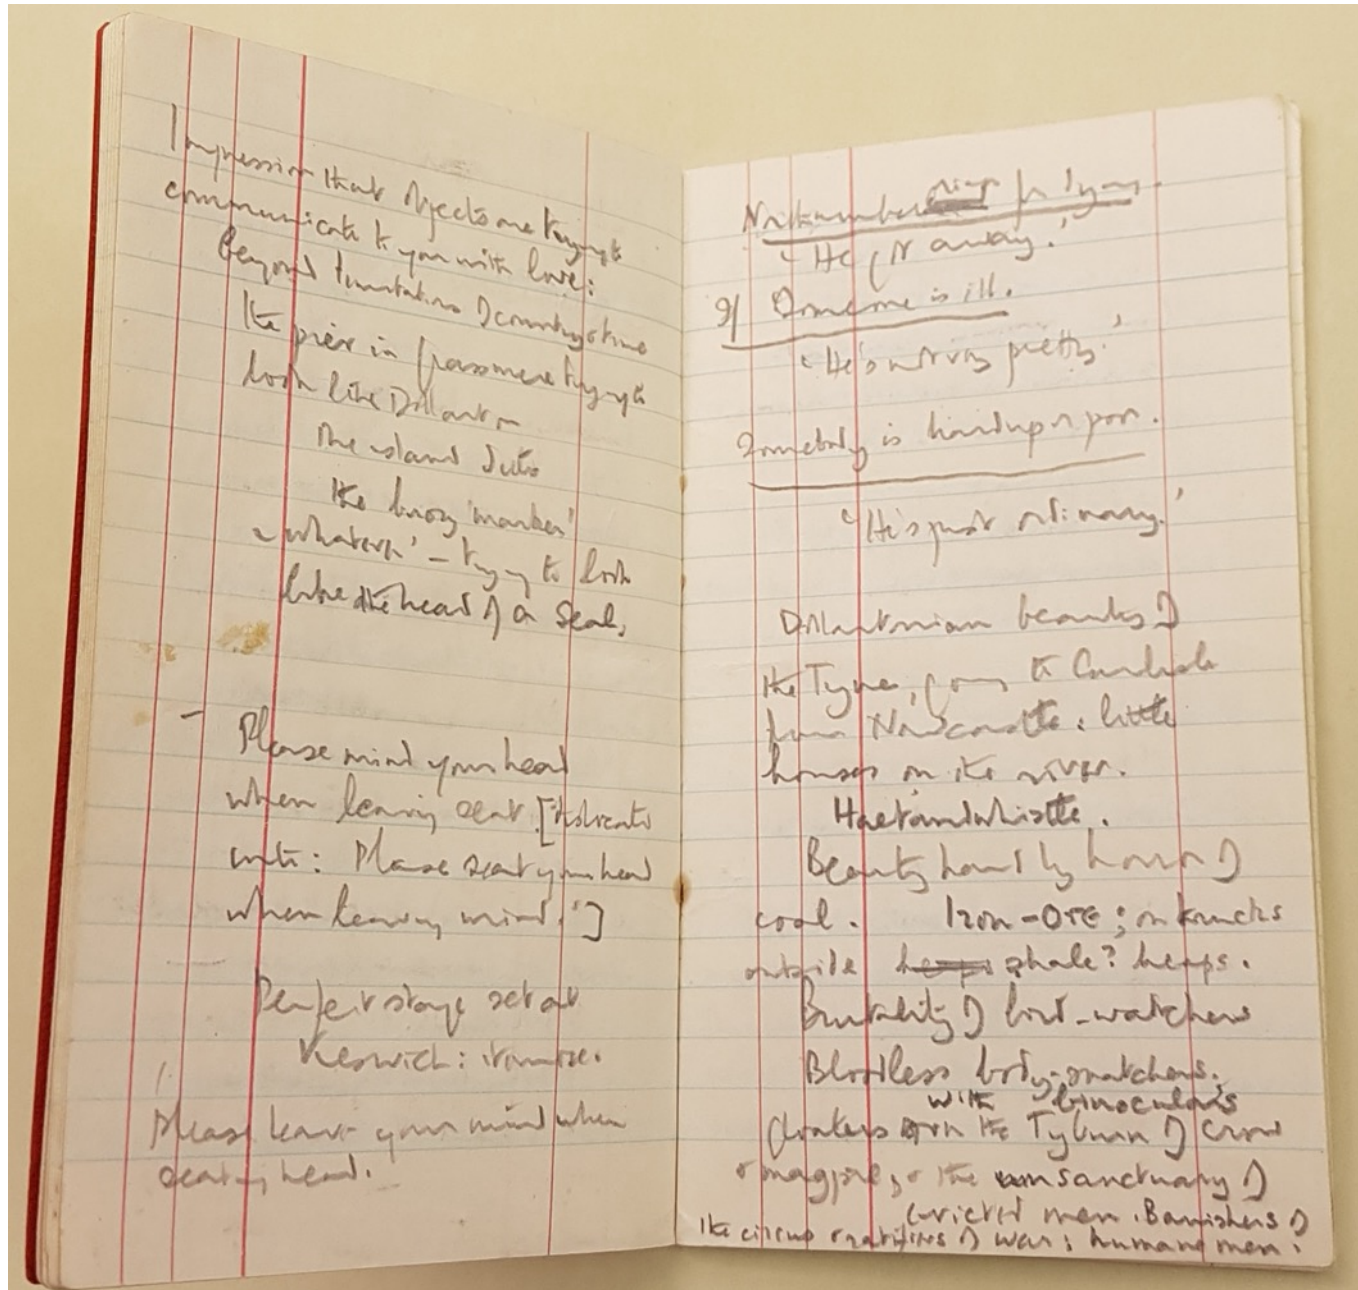 Impression that objects are trying to
communicate to you with love:
Beyond limitations of country & time
The pier in Grasmere trying to
look like Dollarton
The island ditto
the buoy 'marker'
- whatever' - trying to look
like the head of a seal,
- Please mind your head
when leaving seat. [
: Please seat your head
when leaving mind.']
Perfect stage set at
Keswick:
Please leave your mind when
seating head.
Northumberland for
'He away.'
If Someone is ill.
'He's not very pretty.'
Somebody is hardup or poor.
'He's just ordinary.'
Dollartonian beauty of
the Tyne, going to Carlisle
from Newcastle: little
houses on the river.
Haltwhistle.
Beauty hour by hour of
coal. Iron-Ore; on trucks
outside heaps shale? heaps.
Brutality of bird-watchers
Bloodless body-snatchers,
with binoculars
Gloaters on the Tyburn of crow
& magpie, & the sanctuary of
convicted men. Banishers of
the circus & of war: humane men.